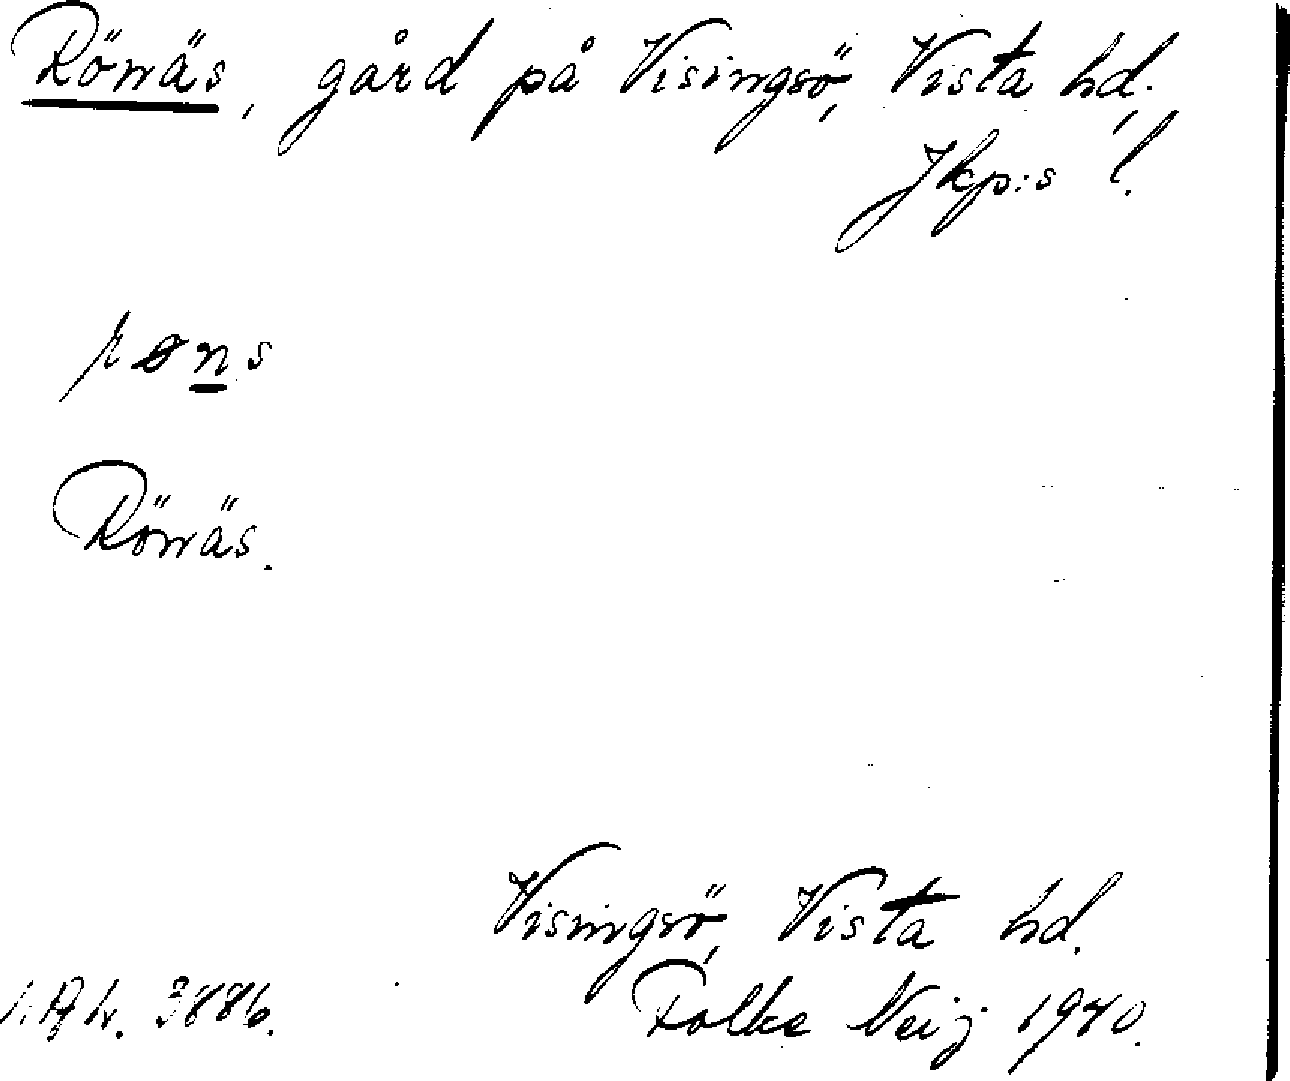 Rönäs, gård på Visingsö, Vista hd,
Jkp:s l.
røns
Rönäs.
Visingsö, Vista hd.
3886. Folke Neij 1940.